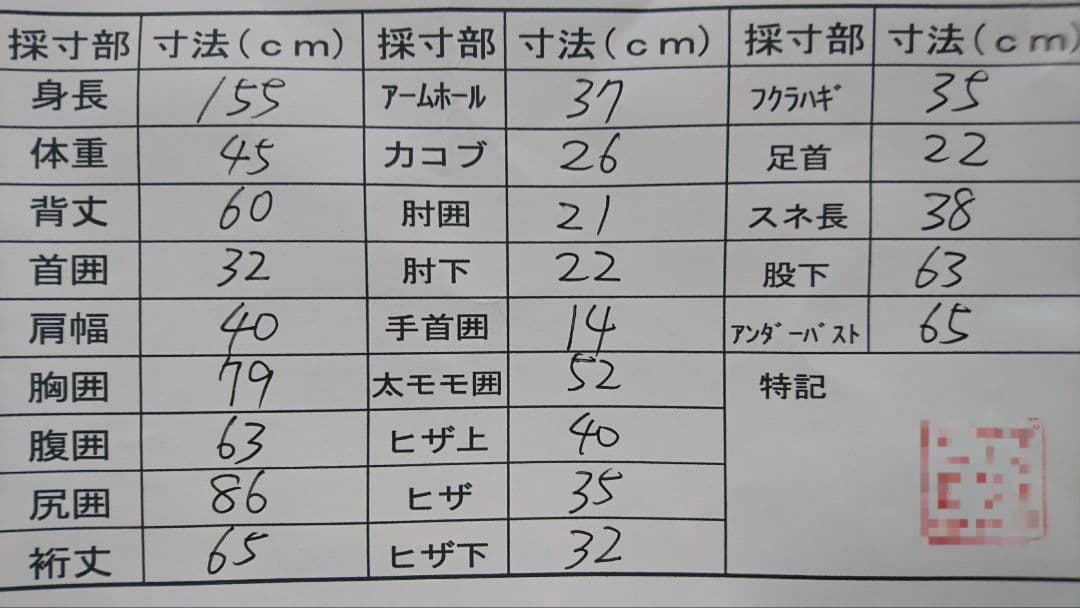 採寸部 寸法(cm) 採寸部 寸法(cm) 採寸部 寸法(cm)
身長 155 アームホール 37 フクラハギ 35
体重 45 力コブ 26 足首 22
背丈 60 肘囲 21 スネ長 38
首囲 32 肘下 22 股下 63
肩幅 40 手首囲 14 アンダーバスト 65
胸囲 79 太モモ囲 52 特記
腹囲 63 ヒザ上 40
尻囲 86 ヒザ 35
裄丈 65 ヒザ下 32